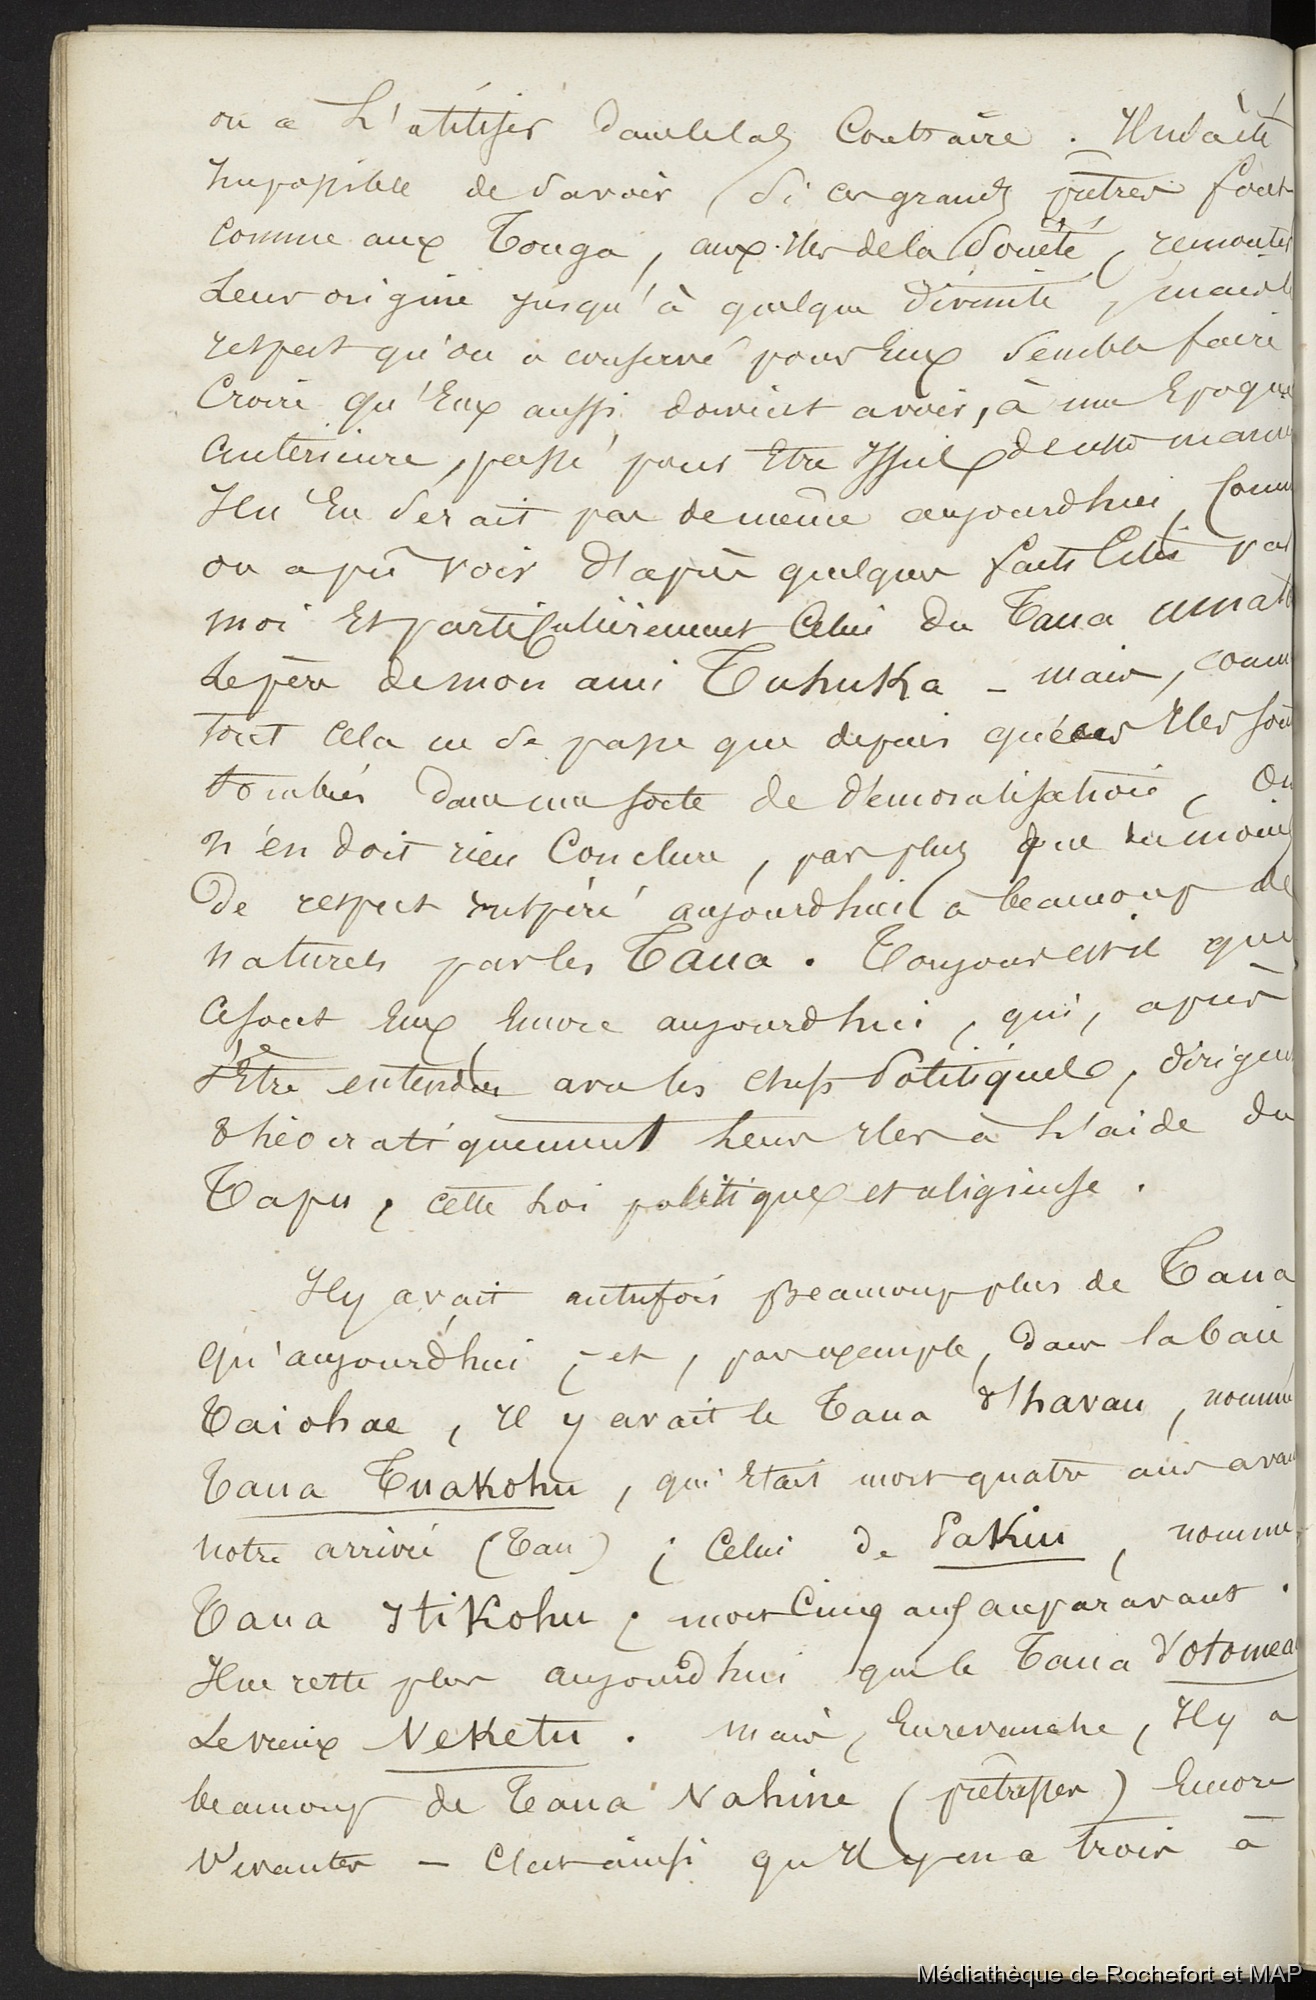 ou a l'utiliser dans le cas contraire. Il m'a été
impossible de savoir, si ces grands prêtres font
comme aux Tonga, aux iles de la Société, remonter
leur origine jusqu'à quelque divinité, mais le
respect qu'on a conservé pour Eux semble faire
croire qu'Eux aussi doivent avoir, à une Epoque
antérieure, passé pour Etre Issus de cette manière
Il n'en serait pas de même aujourdhui, comme
on a pû voir d'après quelques faits Cités par
moi Et particulièrement Celui du Taua
Le père de mon ami Tuhuka - mais, comme
tout cela ne se passe que depuis que ces Iles sont
tombées dans une sorte de démoralisation, On
n'en doit rien Conclure, pas plus que du moins
de respect inspiré aujourdhui à beaucoup de
naturels par les Taua. Toujours est-il que
ce sont Eux Encore aujourdhui, qui, après
s'Etre entendus avec les chefs Politiques, dirigent
théocratiquement leurs Iles à l'aide du
Tapu, cette loi politique et religieuse.
Il y avait autrefois Beaucoup plus de Taua
qu'aujourd'hui; et, par exemple, dans la baie
Taiohae, Il y avait le Taua d'havau, nommé
Taua Tuakohu, qui Etait mort quatre ans avant
notre arrivée (Tau); Celui de Pakiu, nommé
Taua Itikohu, mort Cinq ans auparavant.
Il ne reste plus aujourd'hui que le Taua d'otomea
Le vieux Neketu. mais, En revanche, Il y a
beaucoup de Taua Vahine (prêtresses) Encore
Vivantes - C'est ainsi qu'Il y en a trois à
Médiathèque de Rochefort et MAP